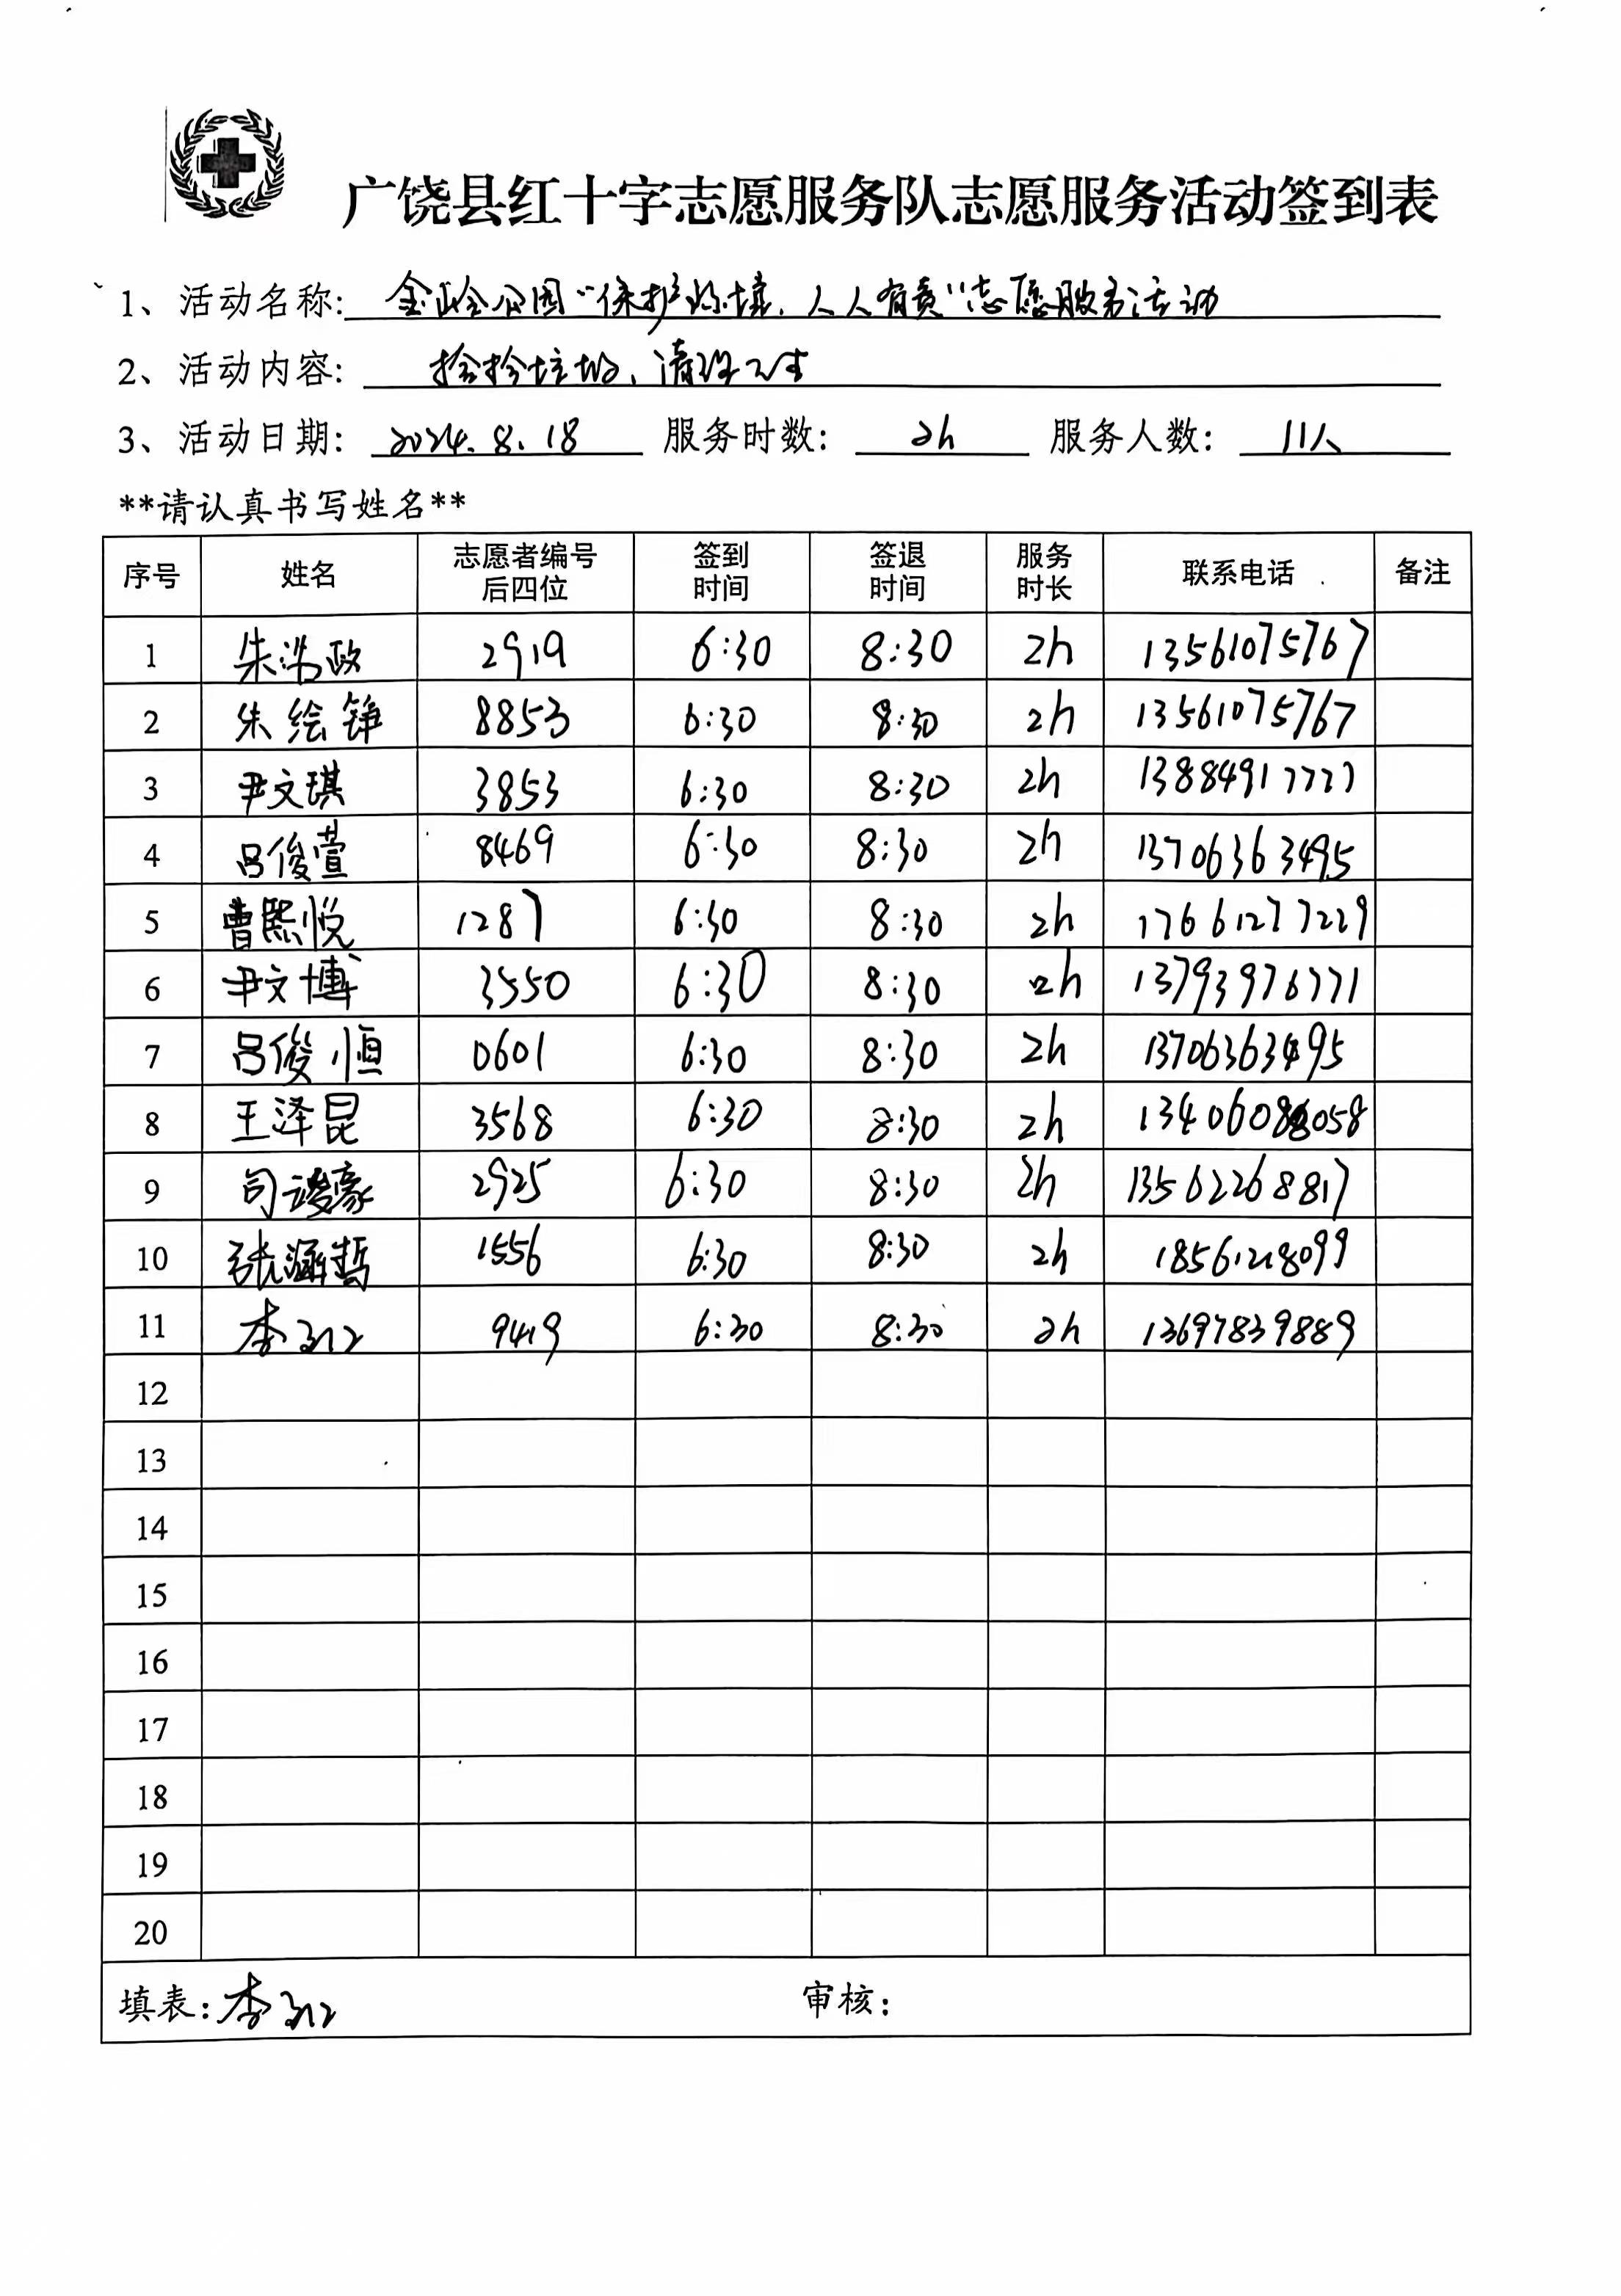 广饶县红十字志愿服务队志愿服务活动签到表
1、活动名称: 金岭公园“保护环境,人人有责”志愿服务活动
2、活动内容: 捡拾垃圾、清理卫生
3、活动日期: 2024.8.18 服务时数: 2h 服务人数: 11人
**请认真书写姓名**
序号 姓名 志愿者编号后四位 签到时间 签退时间 服务时长 联系电话 备注
1 朱浩政 2919 6:30 8:30 2h 13561075767
2 朱绘铮 8853 6:30 8:30 2h 13561075767
3 尹文琪 3853 6:30 8:30 2h 13884917777
4 吕俊萱 8469 6:30 8:30 2h 13706363495
5 曹熙悦 1287 6:30 8:30 2h 17661277229
6 尹文博 3550 6:30 8:30 2h 13793976771
7 吕俊恒 0601 6:30 8:30 2h 13706363495
8 王泽昆 3568 6:30 8:30 2h 13406088058
9 司骏豪 2925 6:30 8:30 2h 13562268817
10 张涵哲 1556 6:30 8:30 2h 18561218099
11 李 9419 6:30 8:30 2h 13697839889
12
13
14
15
16
17
18
19
20
填表: 李 审核: